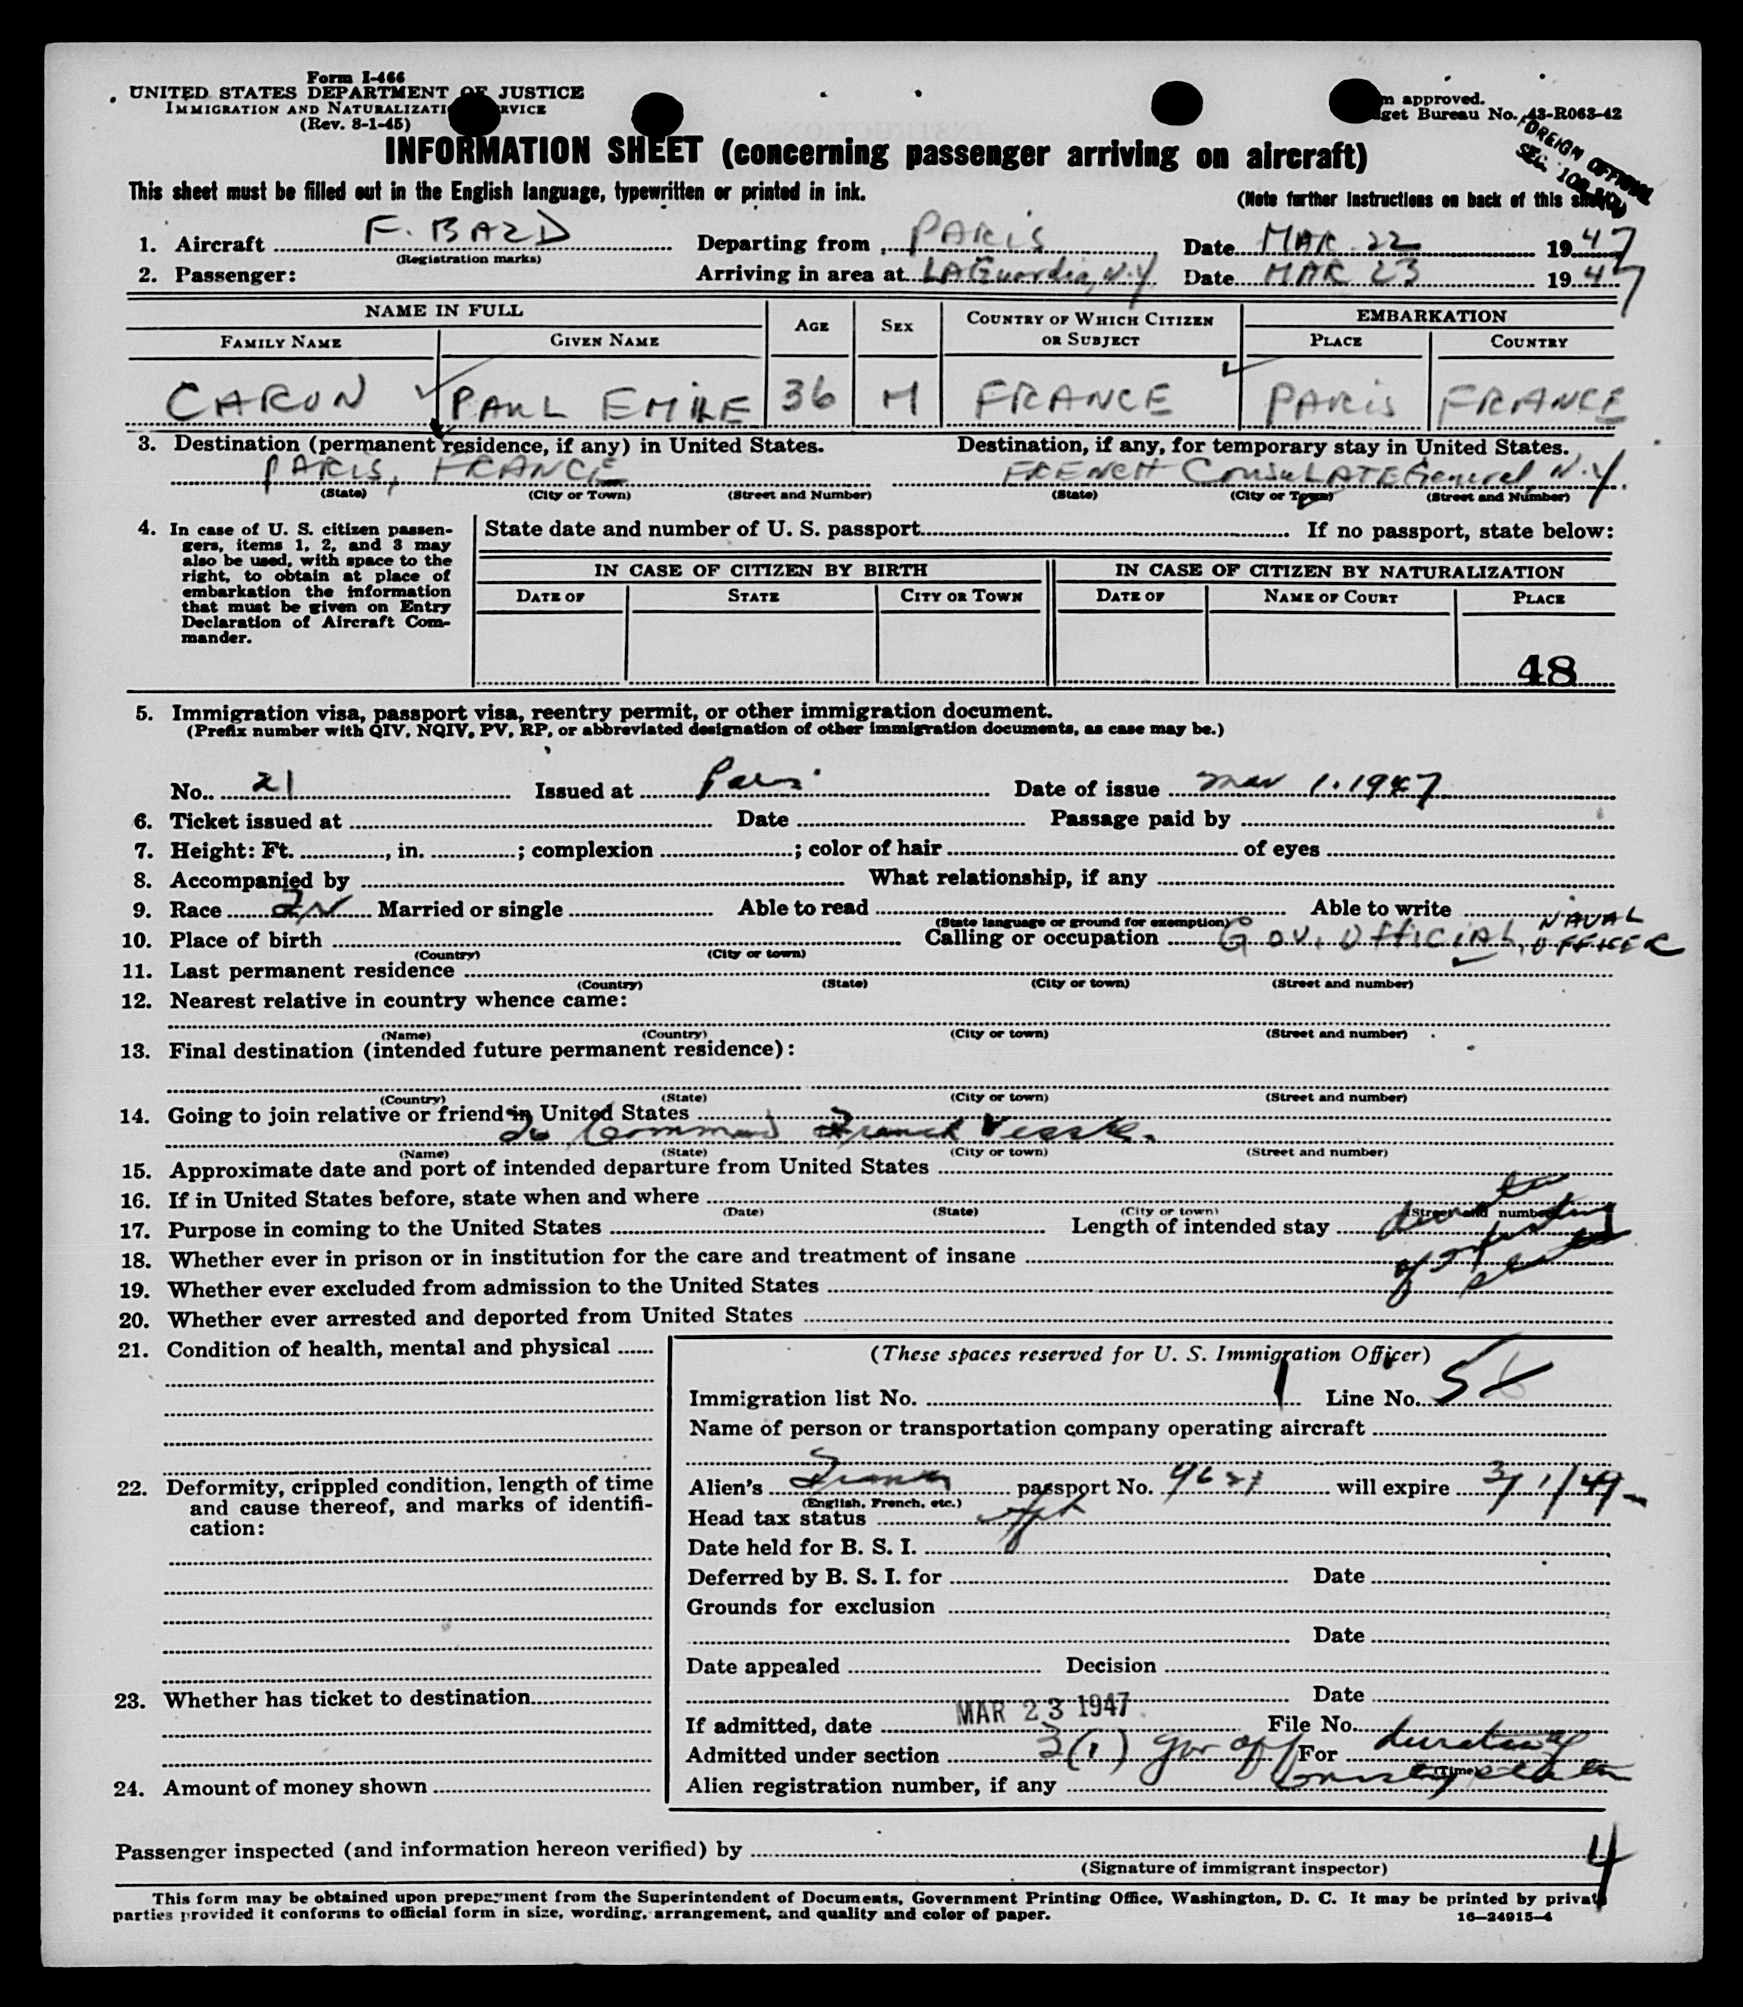 Form I-466
UNITED STATES DEPARTMENT OF JUSTICE
IMMIGRATION AND NATURALIZATI RVICE
(Rev. 8-1-45)
m approved.
get Bureau No. 43-R063-42
FOREIGN OFFICIAL
SEC.
INFORMATION SHEET (concerning passenger arriving on aircraft)
This sheet must be filled out in the English language, typewritten or printed in ink.
(Note further instructions on back of this sheet)
1. Aircraft F. BAZD Departing from PARIS Date MAR 22 1947
(Registration marks)
2. Passenger: Arriving in area at LAGuardia, N.Y. Date MAR 23 1947
NAME IN FULL AGE SEX COUNTRY OF WHICH CITIZEN OR SUBJECT EMBARKATION
FAMILY NAME GIVEN NAME PLACE COUNTRY
CARON PAUL EMILE 36 M FRANCE PARIS FRANCE
3. Destination (permanent residence, if any) in United States. Destination, if any, for temporary stay in United States.
PARIS, FRANCE FRENCH ConsuLATE General, N.Y.
(State) (City or Town) (Street and Number) (State) (City or Town) (Street and Number)
4. In case of U. S. citizen passen-
gers, items 1, 2, and 3 may
also be used, with space to the
right, to obtain at place of
embarkation the information
that must be given on Entry
Declaration of Aircraft Com-
mander.
State date and number of U. S. passport If no passport, state below:
IN CASE OF CITIZEN BY BIRTH IN CASE OF CITIZEN BY NATURALIZATION
DATE OF STATE CITY OR TOWN DATE OF NAME OF COURT PLACE
48
5. Immigration visa, passport visa, reentry permit, or other immigration document.
(Prefix number with QIV, NQIV, PV, RP, or abbreviated designation of other immigration documents, as case may be.)
No. 21 Issued at Paris Date of issue Mar 1. 1947
6. Ticket issued at Date Passage paid by
7. Height: Ft. , in. ; complexion ; color of hair of eyes
8. Accompanied by What relationship, if any
9. Race Married or single Able to read Able to write
(State language or ground for exemption)
10. Place of birth Calling or occupation GOV. OFFICIAL, NAVAL OFFICER
(Country) (City or town)
11. Last permanent residence
(Country) (State) (City or town) (Street and number)
12. Nearest relative in country whence came:
(Name) (Country) (City or town) (Street and number)
13. Final destination (intended future permanent residence):
(Country) (State) (City or town) (Street and number)
14. Going to join relative or friend in United States
To Command French
(Name) (State) (City or town) (Street and number)
15. Approximate date and port of intended departure from United States
16. If in United States before, state when and where
(Date) (State) (City or town) (Street and number)
17. Purpose in coming to the United States Length of intended stay duration of
18. Whether ever in prison or in institution for the care and treatment of insane
19. Whether ever excluded from admission to the United States
20. Whether ever arrested and deported from United States
21. Condition of health, mental and physical
22. Deformity, crippled condition, length of time
and cause thereof, and marks of identifi-
cation:
23. Whether has ticket to destination
24. Amount of money shown
(These spaces reserved for U. S. Immigration Officer)
Immigration list No. 1 Line No. 5
Name of person or transportation company operating aircraft
Alien's French passport No. will expire 3/1/49
(English, French, etc.)
Head tax status
Date held for B. S. I.
Deferred by B. S. I. for Date
Grounds for exclusion
Date
Date appealed Decision
Date
If admitted, date MAR 23 1947 File No.
Admitted under section 3(1) gov off For duration of
(Time)
Alien registration number, if any
Passenger inspected (and information hereon verified) by
(Signature of immigrant inspector)
4
This form may be obtained upon prepayment from the Superintendent of Documents, Government Printing Office, Washington, D. C. It may be printed by private
parties provided it conforms to official form in size, wording, arrangement, and quality and color of paper.
16—24915-4